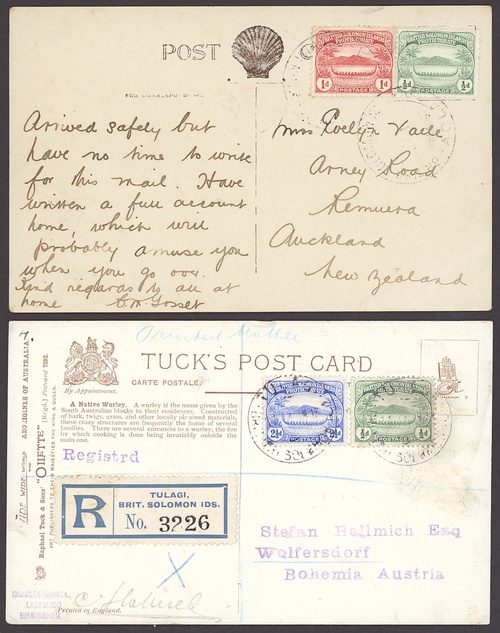 POST
BRITISH SOLOMON ISLANDS
PROTECTORATE
1d POSTAGE 1d
BRITISH SOLOMON ISLANDS
PROTECTORATE
½d POSTAGE ½d
Arrived safely but
have no time to write
for this mail. Have
written a full account
home, which will
probably amuse you
when you go over.
Kind regards to all at
home
Miss Evelyn Vaile
Arney Road
Remuera
Auckland
New Zealand
Printed Matter
TUCK'S POST CARD
By Appointment.
CARTE POSTALE
A Native Wurley. A wurley is the name given by the
South Australian blacks to their residences. Constructed
of bark, twigs, grass, and other locally obtained materials,
these crazy structures are frequently the home of several
families. There are several entrances to a wurley, the fire
by which cooking is done being invariably outside the
main one.
"WIDE WIDE WORLD" ABORIGINALS OF AUSTRALIA
Raphael Tuck & Sons' "OILETTE" [Regd.] Postcard
ART PUBLISHERS TO THEIR MAJESTIES THE KING & QUEEN.
BRITISH SOLOMON ISLANDS
PROTECTORATE
2½d POSTAGE 2½d
BRITISH SOLOMON ISLANDS
PROTECTORATE
½d POSTAGE ½d
Registrd
R
TULAGI,
BRIT. SOLOMON IDS.
No. 3226
Stefan Hellmich Esq
Wolfersdorf
Bohemia Austria
BIRMINGHAM.
Printed in England.